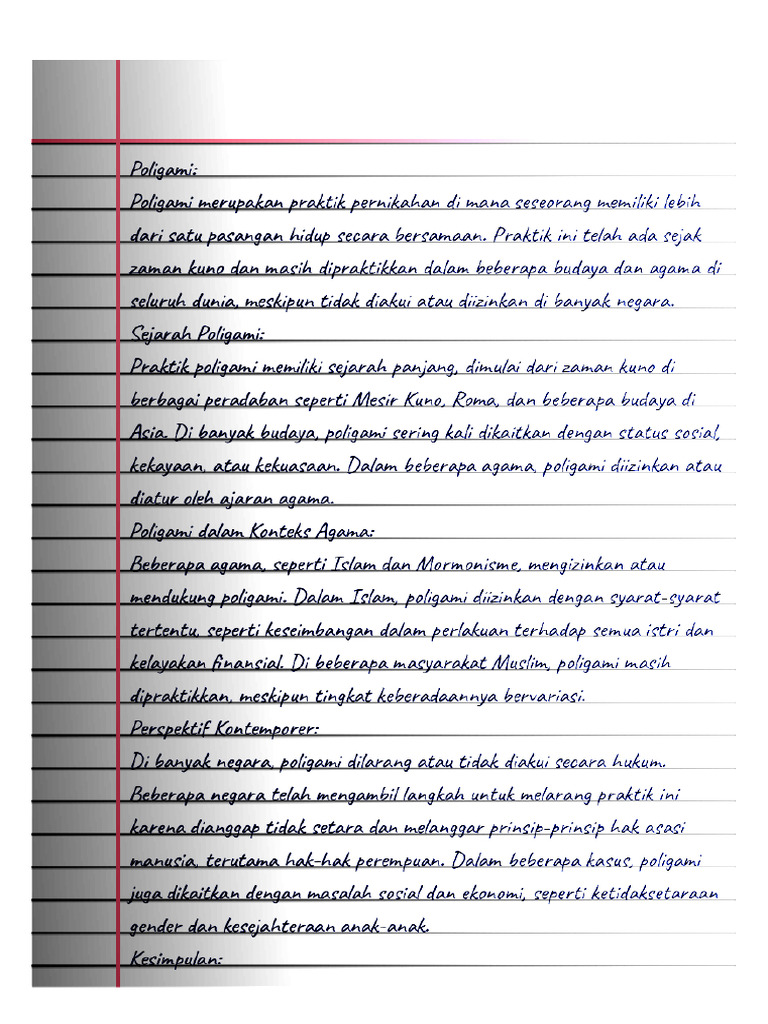 Poligami:
Poligami merupakan praktik pernikahan di mana seseorang memiliki lebih
dari satu pasangan hidup secara bersamaan. Praktik ini telah ada sejak
zaman kuno dan masih dipraktikkan dalam beberapa budaya dan agama di
seluruh dunia, meskipun tidak diakui atau diizinkan di banyak negara.
Sejarah Poligami:
Praktik poligami memiliki sejarah panjang, dimulai dari zaman kuno di
berbagai peradaban seperti Mesir Kuno, Roma, dan beberapa budaya di
Asia. Di banyak budaya, poligami sering kali dikaitkan dengan status sosial,
kekayaan, atau kekuasaan. Dalam beberapa agama, poligami diizinkan atau
diatur oleh ajaran agama.
Poligami dalam Konteks Agama:
Beberapa agama, seperti Islam dan Mormonisme, mengizinkan atau
mendukung poligami. Dalam Islam, poligami diizinkan dengan syarat-syarat
tertentu, seperti keseimbangan dalam perlakuan terhadap semua istri dan
kelayakan finansial. Di beberapa masyarakat Muslim, poligami masih
dipraktikkan, meskipun tingkat keberadaannya bervariasi.
Perspektif Kontemporer:
Di banyak negara, poligami dilarang atau tidak diakui secara hukum.
Beberapa negara telah mengambil langkah untuk melarang praktik ini
karena dianggap tidak setara dan melanggar prinsip-prinsip hak asasi
manusia, terutama hak-hak perempuan. Dalam beberapa kasus, poligami
juga dikaitkan dengan masalah sosial dan ekonomi, seperti ketidaksetaraan
gender dan kesejahteraan anak-anak.
Kesimpulan: